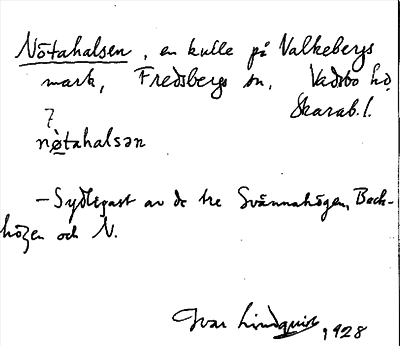 Nötahalsen, en kulle på Valkebergs
mark, Fredsbergs sn, Vadsbo hd.
Skarab. l.
7
nø̀tahalsən
– Sydligast av de tre Svännahögen, Back-
högen och N.
Ivar Lindquist, 1928